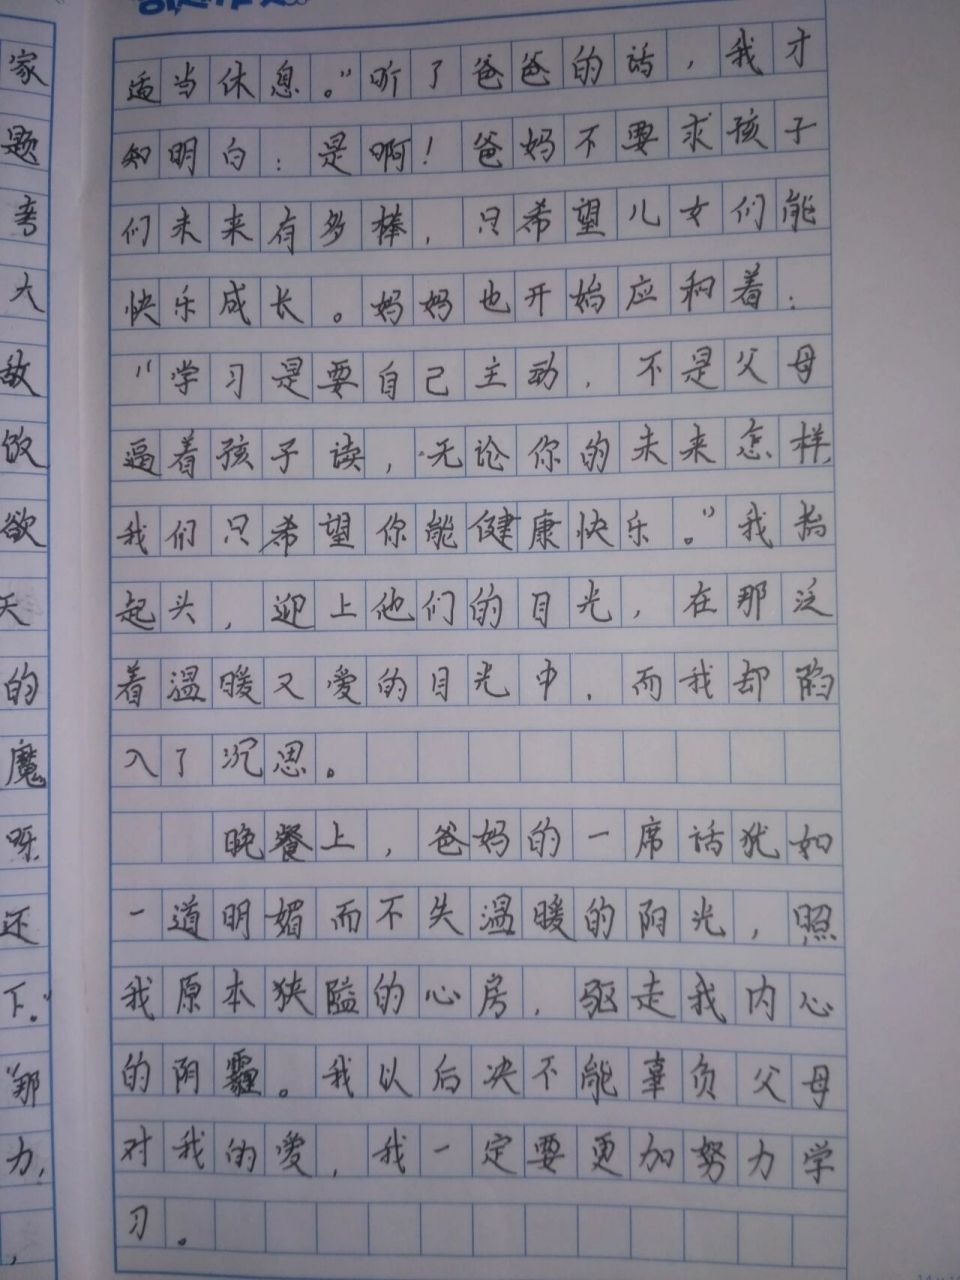 适当休息。"听了爸爸的话，我才
知明白：是啊！爸妈不要求孩子
们未来有多棒，只希望儿女们能
快乐成长。妈妈也开始应和着：
"学习是要自己主动，不是父母
逼着孩子读，无论你的未来怎样，
我们只希望你能健康快乐。"我抬
起头，迎上他们的目光，在那泛
着温暖又爱的目光中，而我却陷
入了沉思。
晚餐上，爸妈的一席话犹如
一道明媚而不失温暖的阳光，照
我原本狭隘的心房，驱走我内心
的阴霾。我以后决不能辜负父母
对我的爱，我一定要更加努力学
习。
家
题
大
敌
饭
欲
天
的
魔
呀
还
下。"
"那
力，
，